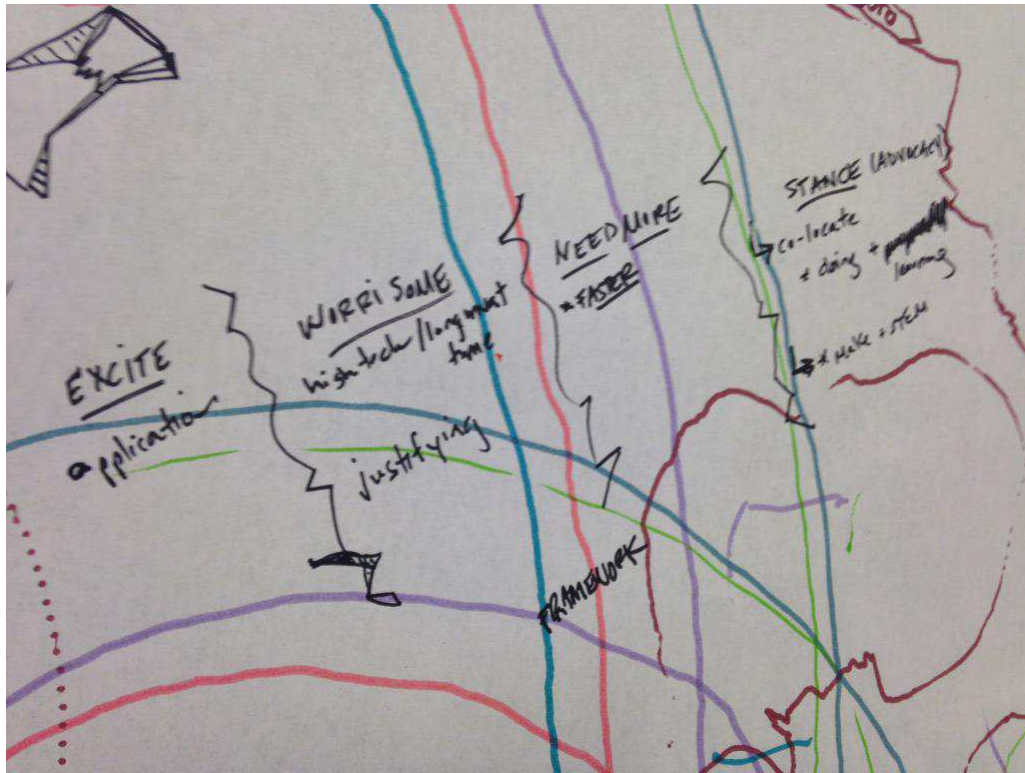 EXCITE
application
WORRISOME
high tech/long wait
time
justifying
NEED MORE
* FASTER
STANCE (ADVOCACY)
co-locate
* doing +
learning
* MAKE + STEM
FRAMEWORK